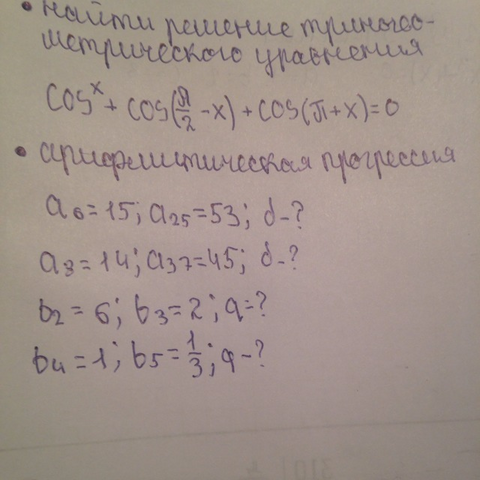 • найти решение триного-
метрического уравнения
cos^x + cos(π/2 - x) + cos(π + x) = 0
• арифмитическая прогрессия
a6 = 15; a25 = 53; d - ?
a8 = 14; a37 = 45; d - ?
b2 = 6; b3 = 2; q = ?
b4 = 1; b5 = 1/3; q - ?